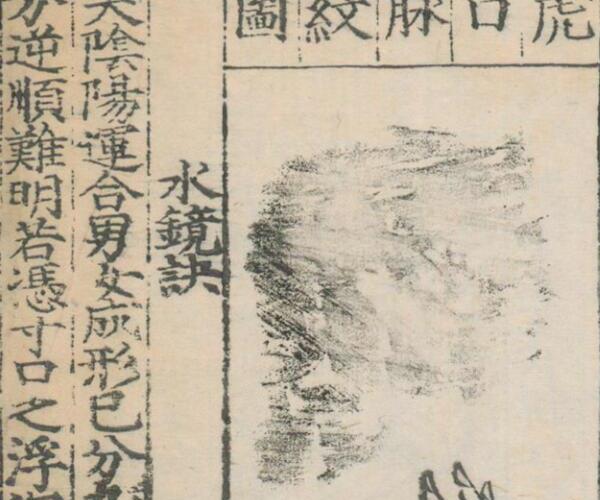 虎口脉紋圖
水鏡訣
陰陽運合男女成形已分
逆順難明若憑寸口之浮